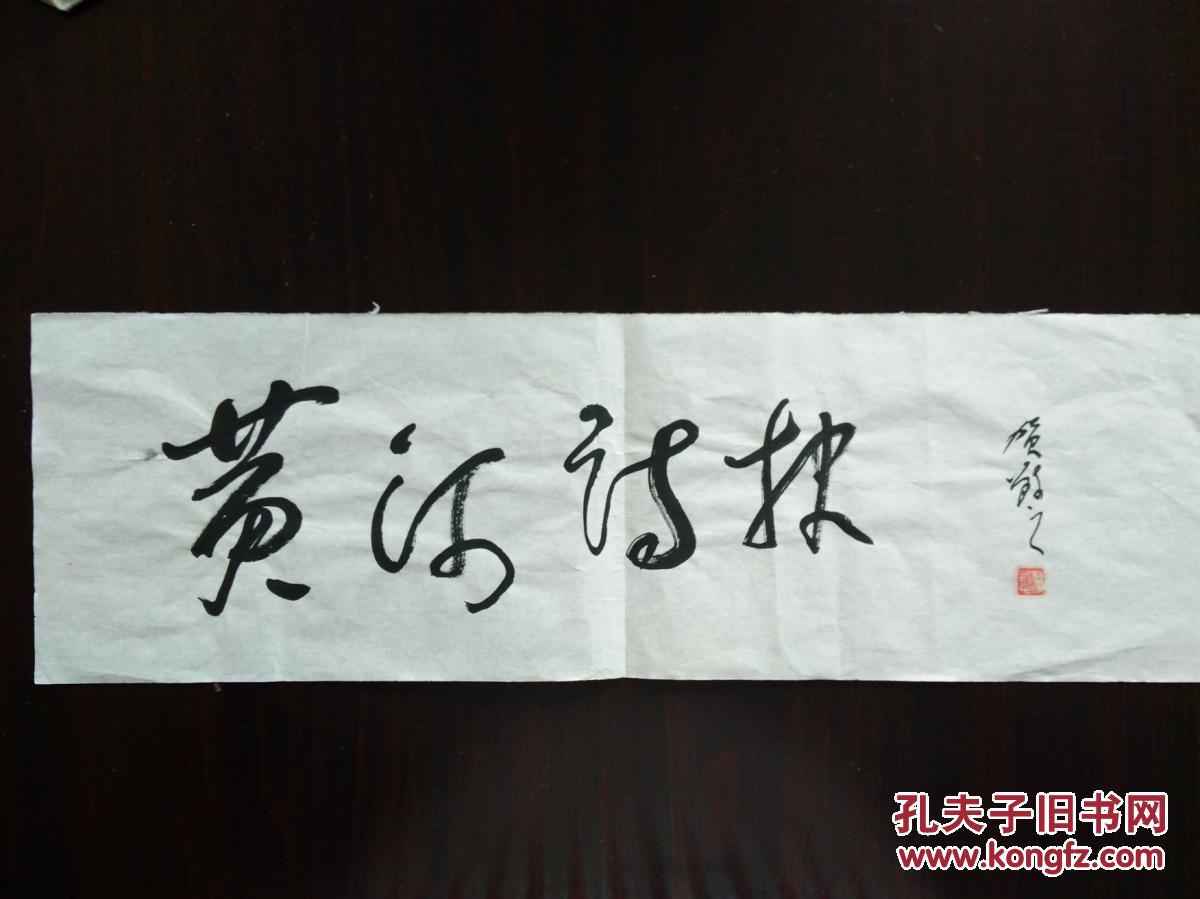 黄河诗
贺敬之
孔夫子旧书网
www.kongfz.com